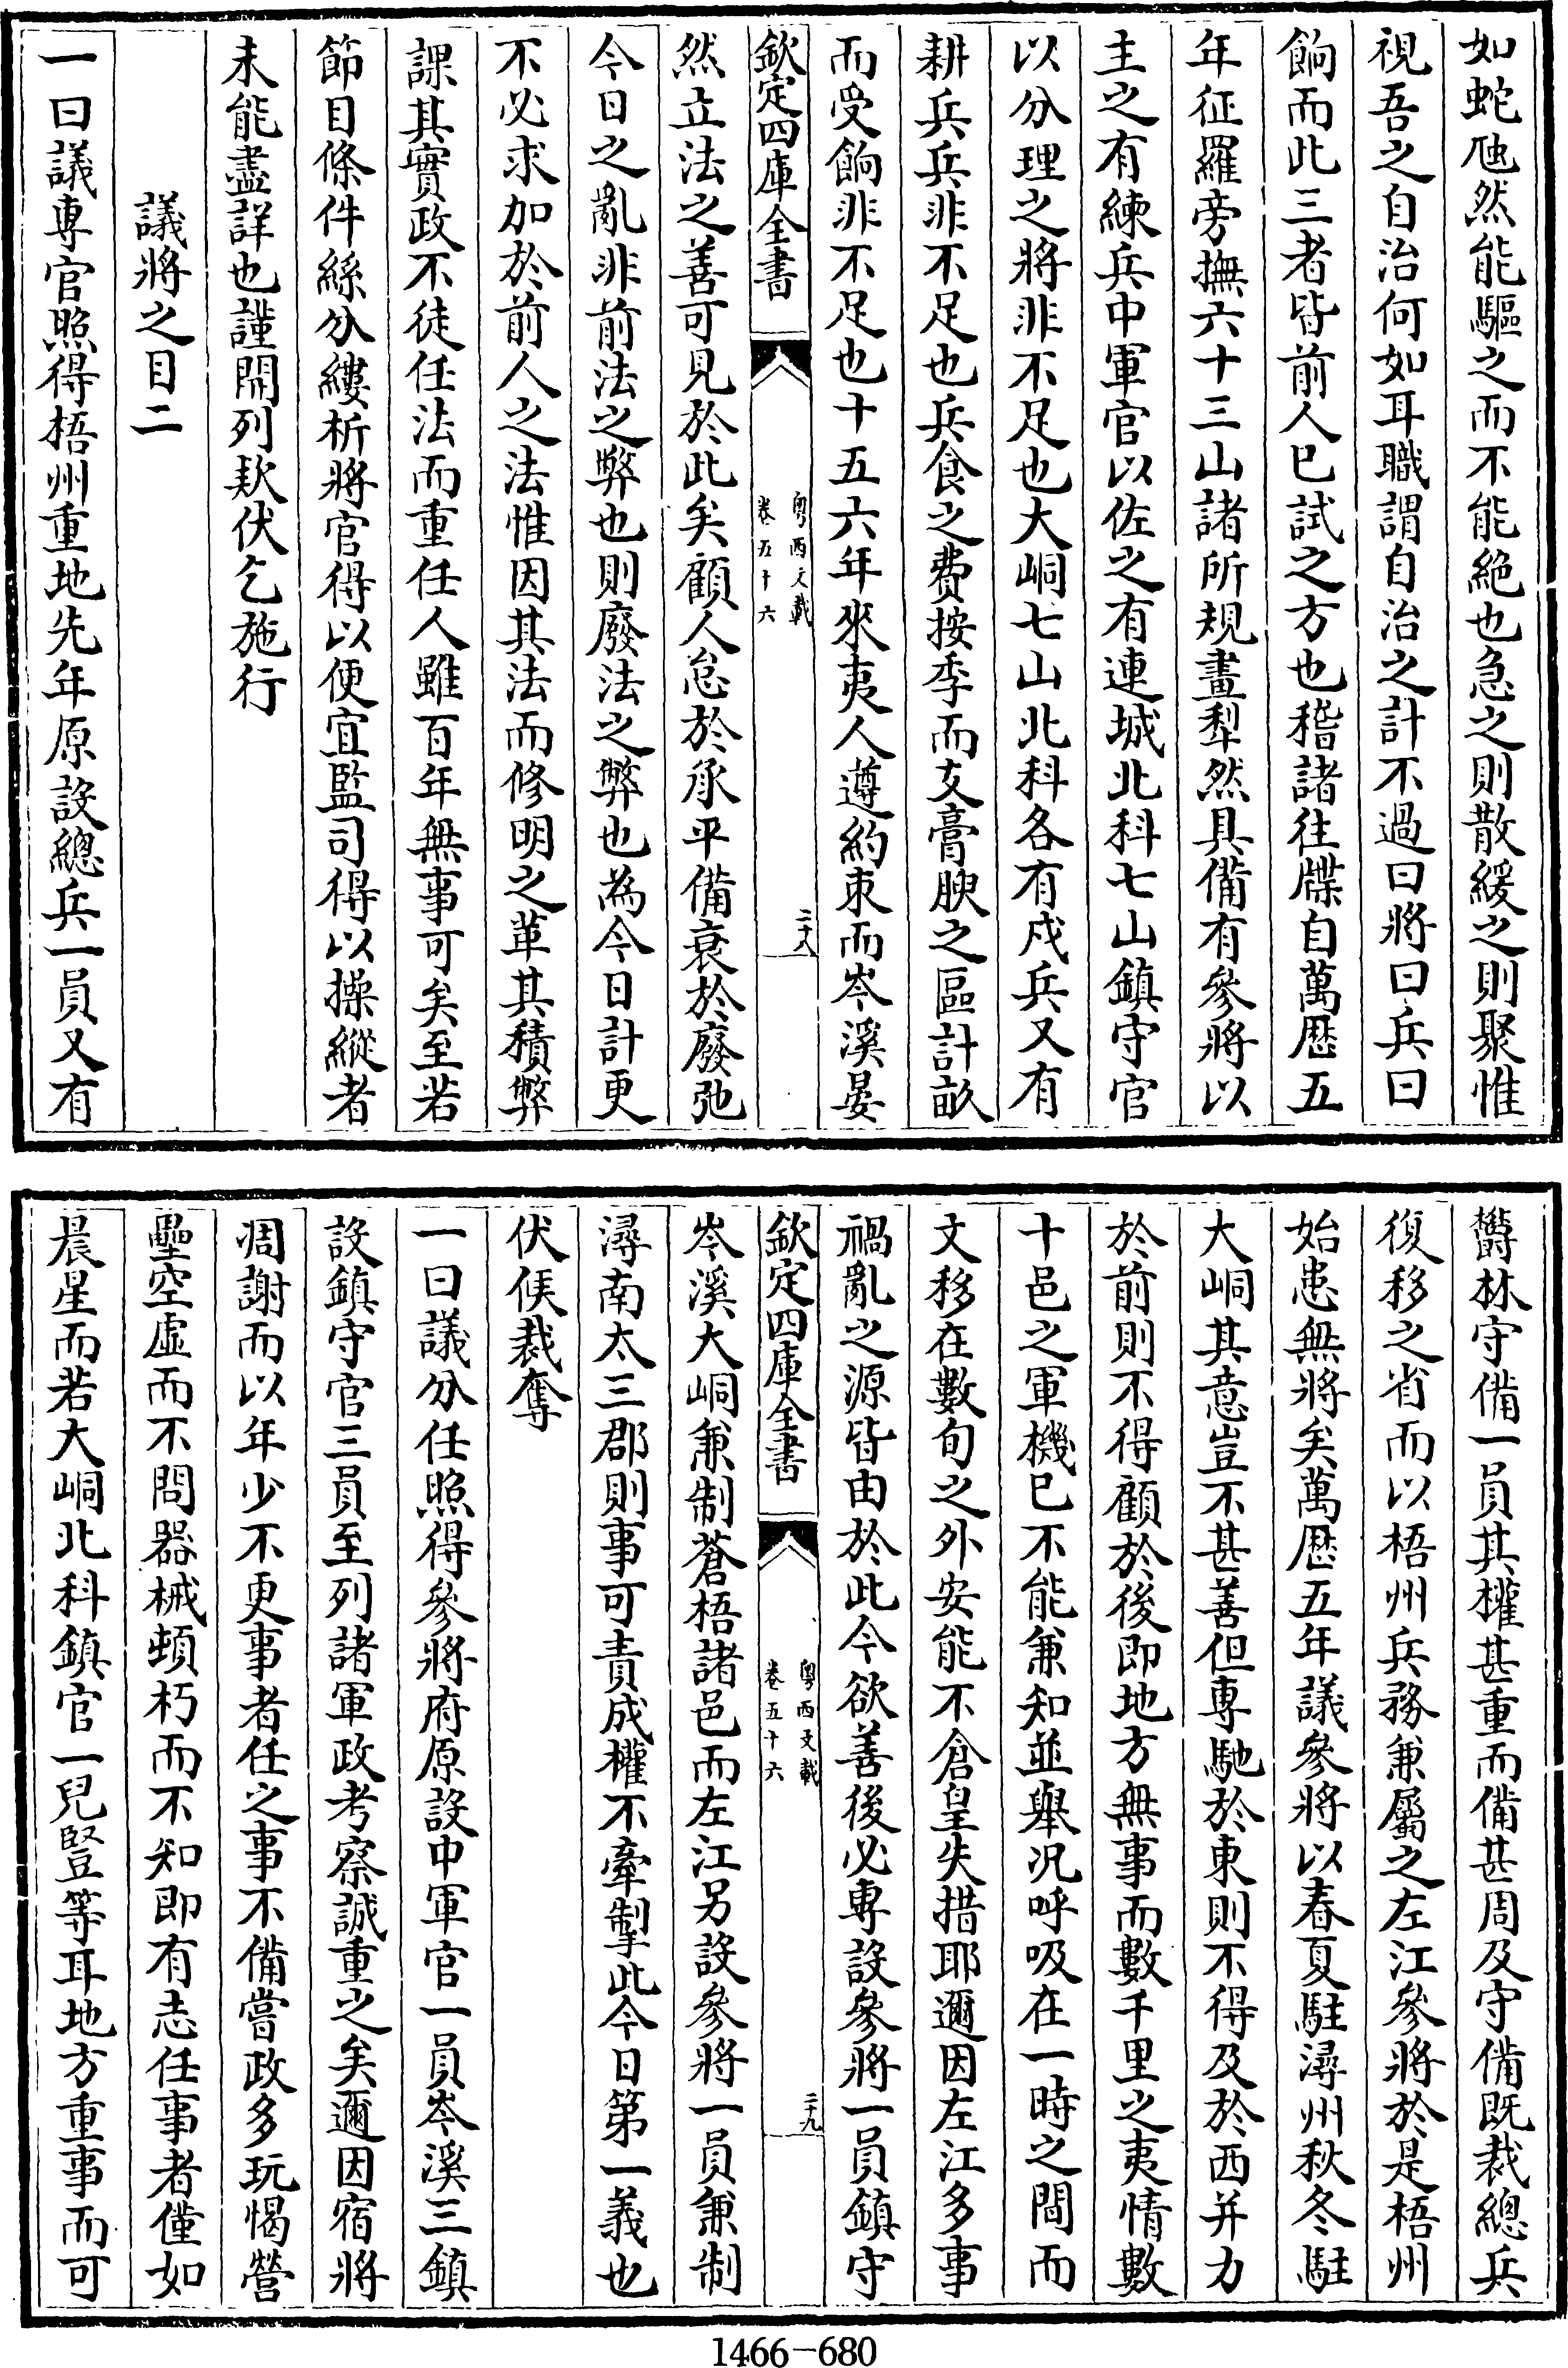 如蛇虺然能驅之而不能絶也急之則散緩之則聚惟
視吾之自治何如耳職謂自治之計不過曰將曰兵曰
餉而此三者皆前人已試之方也稽諸往牒自萬歴五
年征羅旁撫六十三山諸所規畫犁然具備有參將以
主之有練兵中軍官以佐之有連城北科七山鎮守官
以分理之將非不足也大峒七山北科各有戍兵又有
耕兵兵非不足也兵食之費按季而支膏腴之區計畝
而受餉非不足也十五六年來夷人遵約束而岑溪晏
欽定四庫全書
粤西文載
卷五十六
二十八
然立法之善可見於此矣顧人怠於承平備衰於廢弛
今日之亂非前法之弊也則廢法之弊也為今日計更
不必求加於前人之法惟因其法而修明之革其積弊
課其實政不徒任法而重任人雖百年無事可矣至若
節目條件絲分縷析將官得以便宜監司得以操縱者
未能盡詳也謹開列欵伏乞施行
議將之目二
一曰議專官照得梧州重地先年原設總兵一員又有
欝林守備一員其權甚重而備甚周及守備既裁總兵
復移之省而以梧州兵務兼屬之左江參將於是梧州
始患無將矣萬歴五年議參將以春夏駐潯州秋冬駐
大峒其意豈不甚善但專馳於東則不得及於西并力
於前則不得顧於後即地方無事而數千里之夷情數
十邑之軍機已不能兼知並舉况呼吸在一時之間而
文移在數旬之外安能不倉皇失措耶邇因左江多事
禍亂之源皆由於此今欲善後必專設參將一員鎮守
欽定四庫全書
粤西文載
卷五十六
二十九
岑溪大峒兼制蒼梧諸邑而左江另設參將一員兼制
潯南太三郡則事可責成權不牽掣此今日第一義也
伏候裁奪
一曰議分任照得參將府原設中軍官一員岑溪三鎮
設鎮守官三員至列諸軍政考察誠重之矣邇因宿將
凋謝而以年少不更事者任之事不備嘗政多玩愒營
壘空虚而不問器械頓朽而不知即有志任事者僅如
晨星而若大峒北科鎮官一兒豎等耳地方重事而可
1466-680